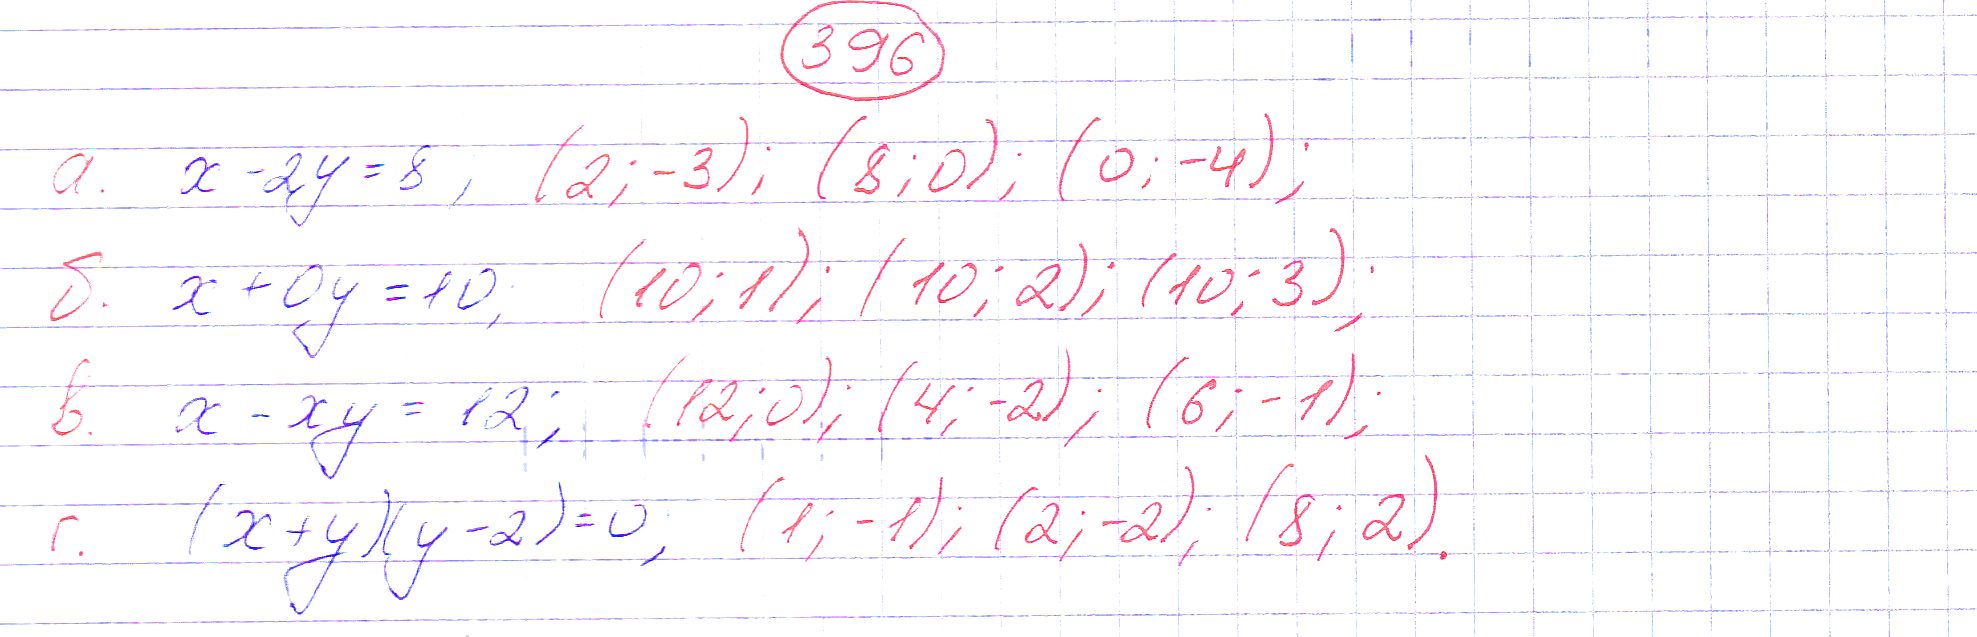 396
а. x - 2y = 8, (2; -3); (8; 0); (0; -4);
б. x + 0y = 10, (10; 1); (10; 2); (10; 3);
в. x - xy = 12; (12; 0); (4; -2); (6; -1);
г. (x + y)(y - 2) = 0; (1; -1); (2; -2); (8; 2).